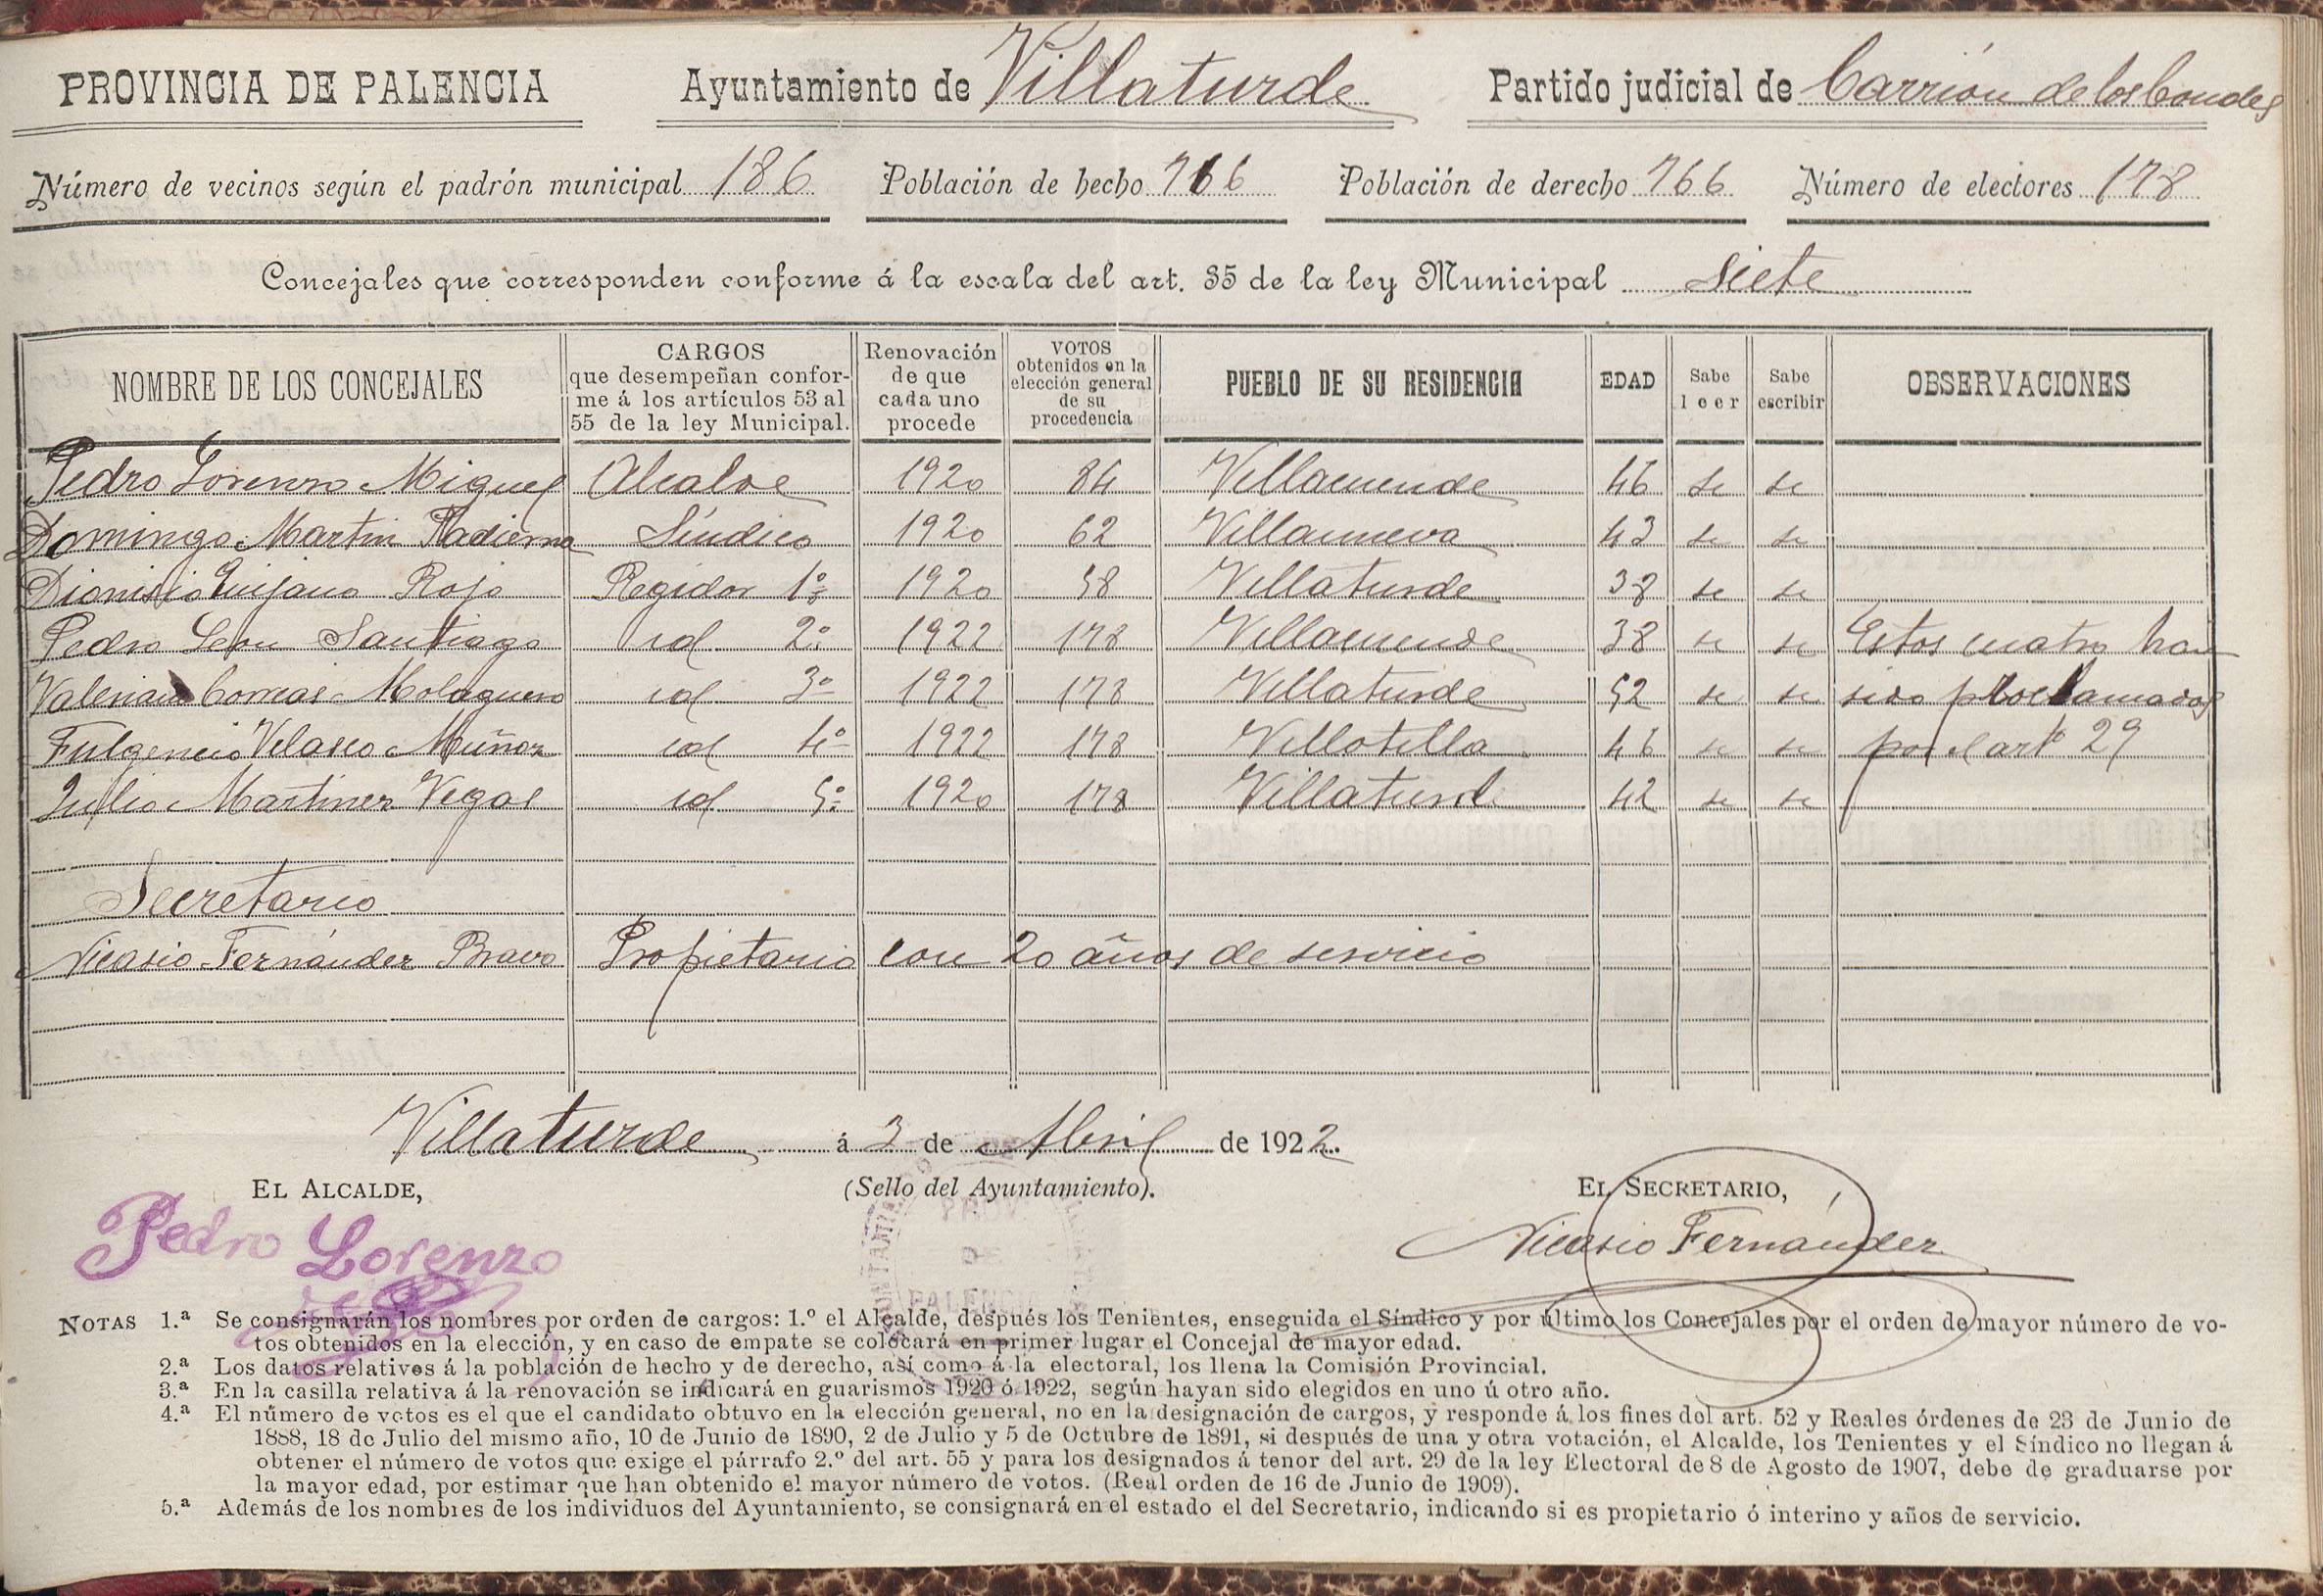 PROVINCIA DE PALENCIA Ayuntamiento de Villaturde Partido judicial de Carrión de los Condes
Número de vecinos según el padrón municipal 186 Población de hecho 766 Población de derecho 766 Número de electores 178
Concejales que corresponden conforme á la escala del art. 35 de la ley Municipal Siete
NOMBRE DE LOS CONCEJALES
CARGOS
que desempeñan confor-
me á los artículos 53 al
55 de la ley Municipal.
Renovación
de que
cada uno
procede
VOTOS
obtenidos en la
elección general
de su
procedencia
PUEBLO DE SU RESIDENCIA
EDAD
Sabe
leer
Sabe
escribir
OBSERVACIONES
Pedro Lorenzo Miguel Alcalde 1920 84 Villacuende 46 si si
Domingo Martin Padierna Síndico 1920 62 Villanueva 43 si si
Dionisio Quijano Rojo Regidor 1º 1920 58 Villaturde 38 si si
Pedro Leon Santiago id 2º 1922 178 Villacuende 38 si si Estos cuatro han
Valeriano Comas Molaguero id 3º 1922 178 Villaturde 52 si si sido proclamados
Fulgencio Velasco Muñoz id 4º 1922 178 Villotilla 46 si si por el artº 29
Julio Martinez Vegas id 5º 1920 178 Villaturde 42 si si
Secretario
Nicasio Fernández Bravo Propietario con 20 años de servicio
Villaturde á 3 de Abril de 1922.
EL ALCALDE, (Sello del Ayuntamiento). EL SECRETARIO,
Pedro Lorenzo
Nicasio Fernández
PROV.
DE
PALENCIA
NOTAS 1.ª Se consignarán los nombres por orden de cargos: 1.º el Alcalde, después los Tenientes, enseguida el Síndico y por último los Concejales por el orden de mayor número de vo-
tos obtenidos en la elección, y en caso de empate se colocará en primer lugar el Concejal de mayor edad.
2.ª Los datos relativos á la población de hecho y de derecho, así como á la electoral, los llena la Comisión Provincial.
3.ª En la casilla relativa á la renovación se indicará en guarismos 1920 ó 1922, según hayan sido elegidos en uno ú otro año.
4.ª El número de votos es el que el candidato obtuvo en la elección general, no en la designación de cargos, y responde á los fines del art. 52 y Reales órdenes de 23 de Junio de
1888, 18 de Julio del mismo año, 10 de Junio de 1890, 2 de Julio y 5 de Octubre de 1891, si después de una y otra votación, el Alcalde, los Tenientes y el Síndico no llegan á
obtener el número de votos que exige el párrafo 2.º del art. 55 y para los designados á tenor del art. 29 de la ley Electoral de 8 de Agosto de 1907, debe de graduarse por
la mayor edad, por estimar que han obtenido el mayor número de votos. (Real orden de 16 de Junio de 1909).
5.ª Además de los nombres de los individuos del Ayuntamiento, se consignará en el estado el del Secretario, indicando si es propietario ó interino y años de servicio.